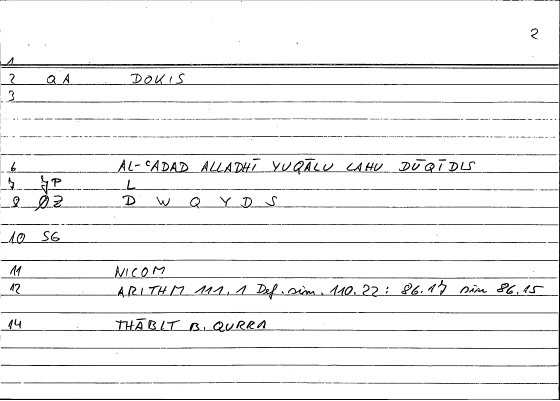 2
1
2 QA DOKIS
3
6 AL-ʿADAD ALLADHĪ YUQĀLU LAHU DŪQĪDIS
7 7P L
8 ØZ D W Q Y D S
10 SG
11 NICOM
12 ARITHM 111.1 Def. sim. 110.22: 86.17 sim 86.15
14 THĀBIT B. QURRA